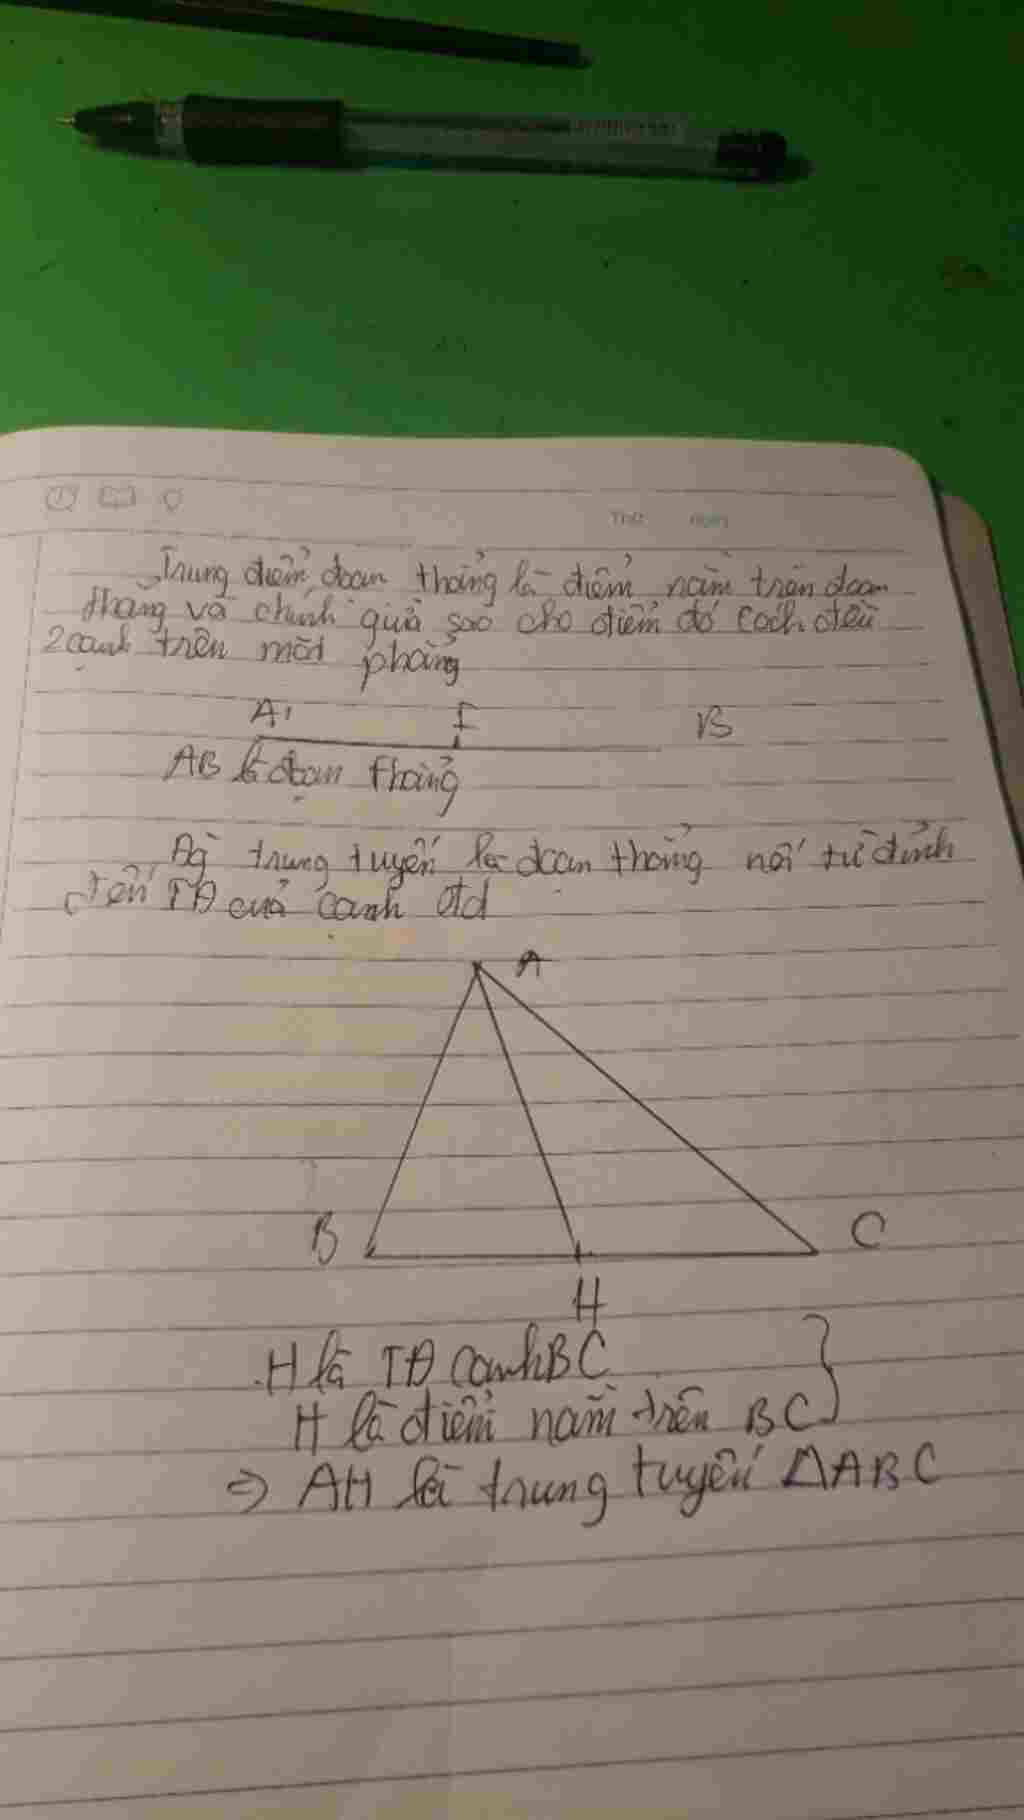 Trung điểm đoạn thẳng là điểm nằm trên đoạn
thẳng và chính giữa sao cho điểm đó cách đều
2 cạnh trên mặt phẳng
A I B
AB là đoạn thẳng
trung tuyến là đoạn thẳng nối từ đỉnh
đến TĐ của cạnh đd
A
B C
H
H là TĐ cạnh BC }
H là điểm nằm trên BC
⇒ AH là trung tuyến ΔABC